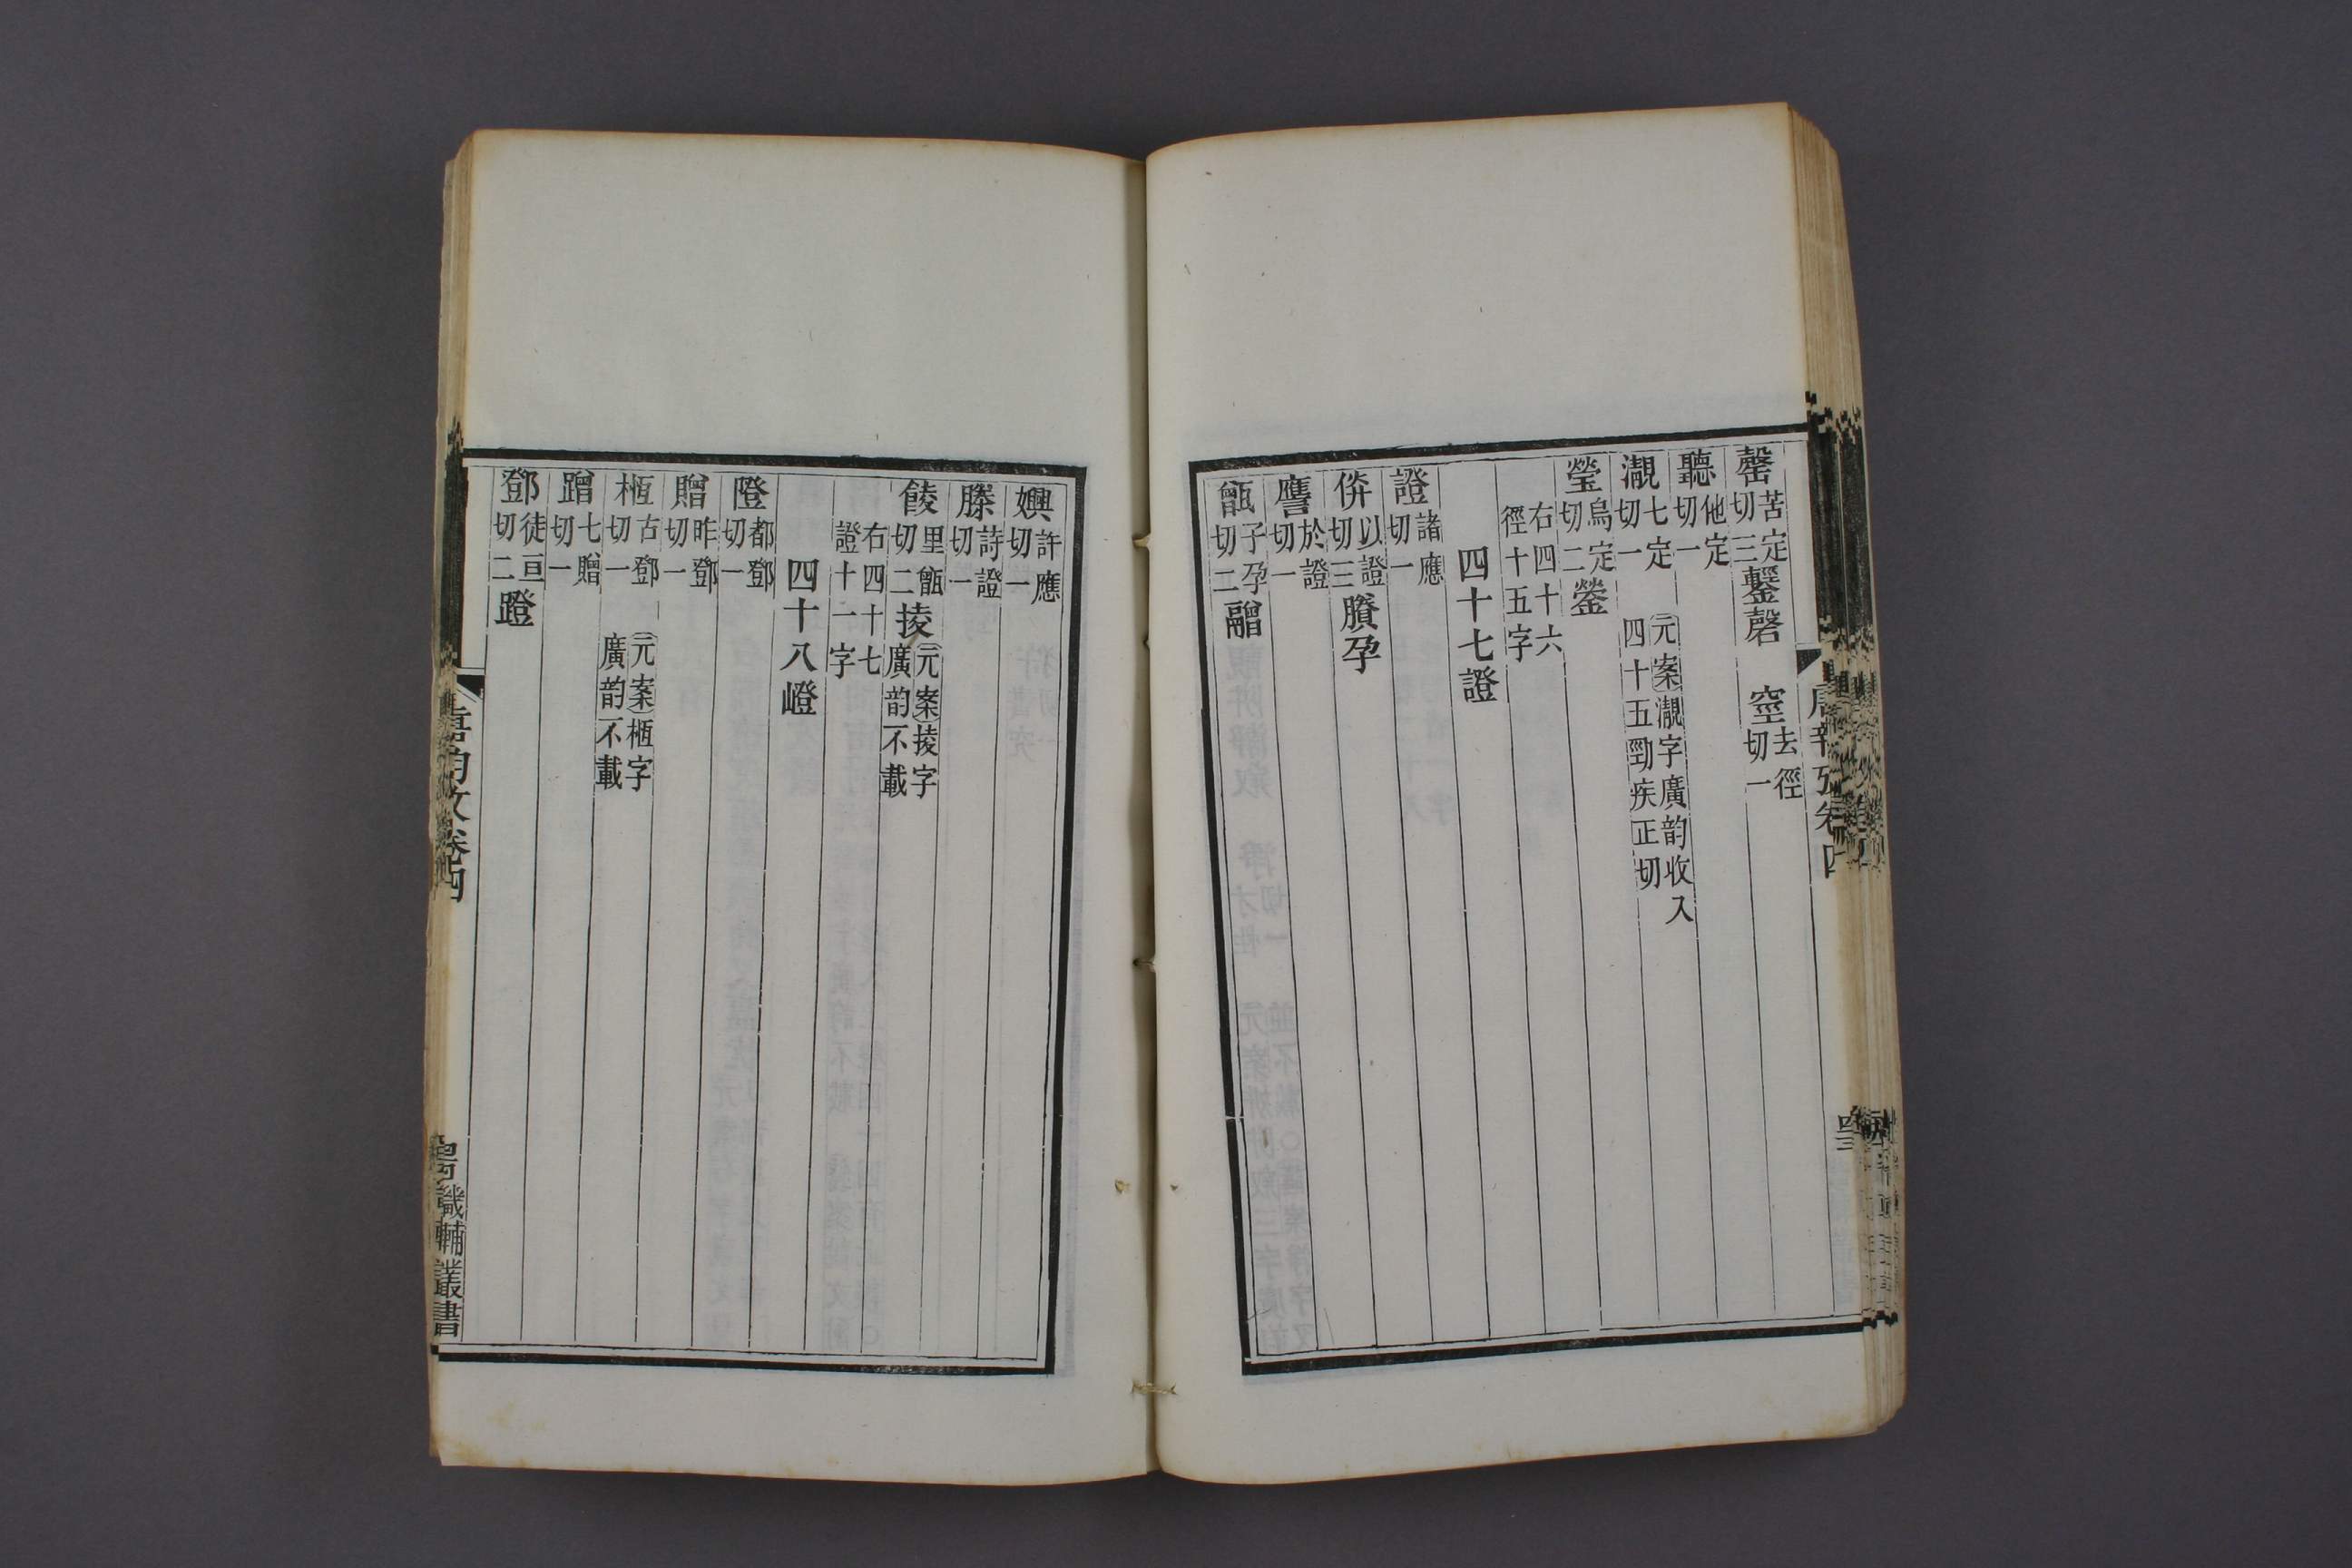 罄苦定切三鑋磬　窒去徑切一
聽他定切一
瀙七定切一　元案瀙字廣韵收入四十五勁疾正切
瑩烏定切二鎣
右四十六徑十五字
四十七證
證諸應切一
倴以證切三賸孕
譍於證切一
甑子孕切二䰝
唐韵攷卷四
嬹許應切一
勝詩證切一
餕里甑切二掕　元案掕字廣韵不載
右四十七證十一字
四十八嶝
隥都鄧切一
贈昨鄧切一
㮓古鄧切一　元案㮓字廣韵不載
蹭七贈切一
鄧徒亘切二蹬
唐韵攷卷四
畿輔叢書